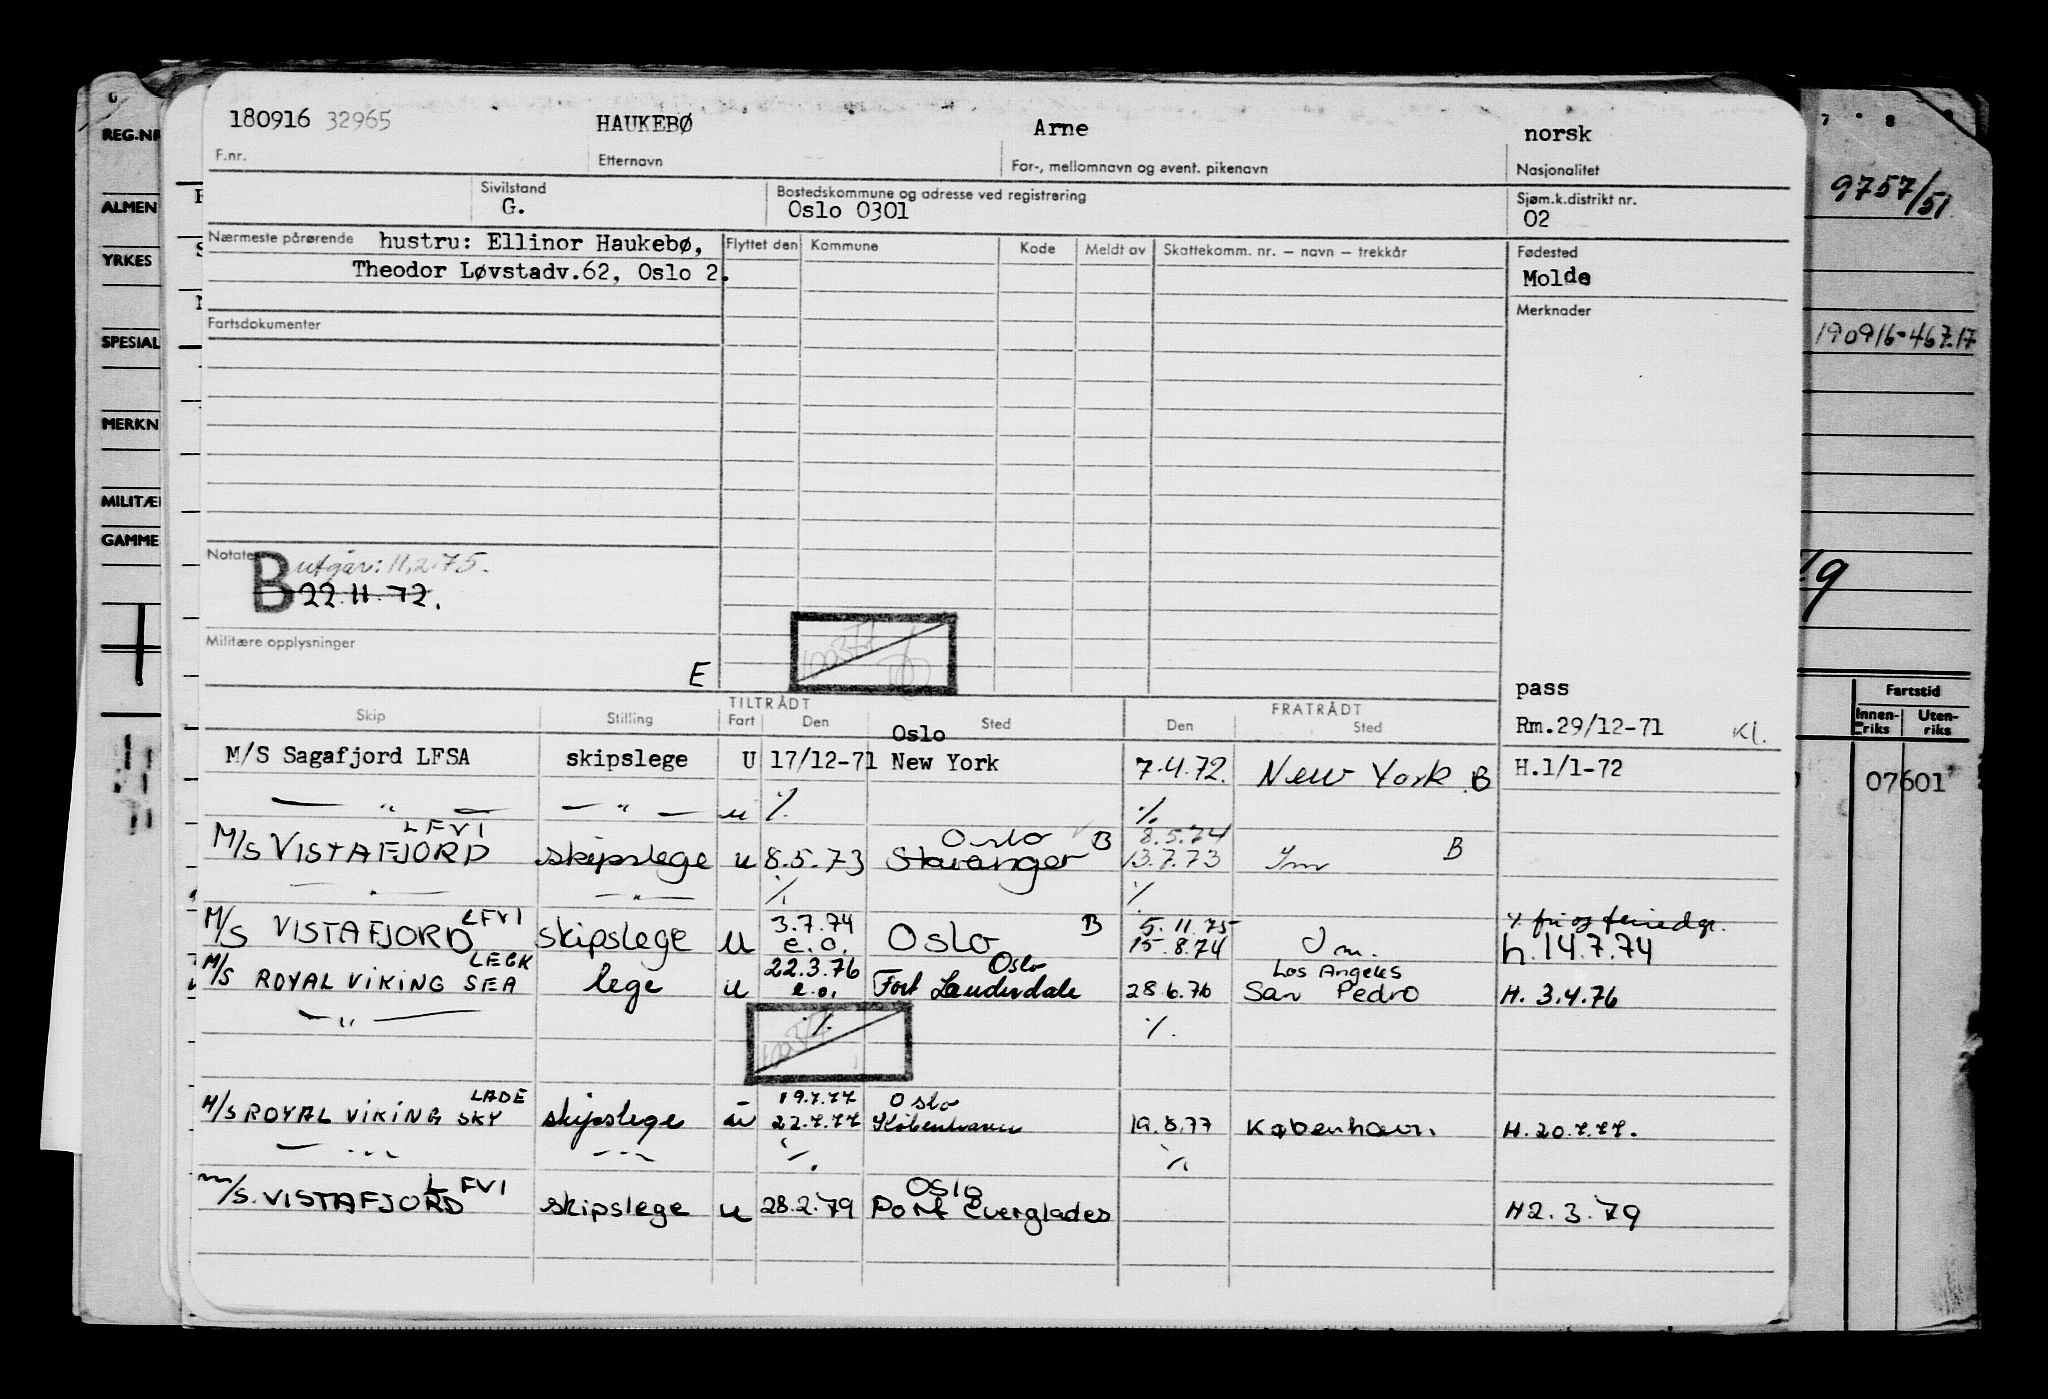 180916 32965 HAUKEBØ Arne norsk
F.nr. Etternavn For-, mellomnavn og event. pikenavn Nasjonalitet
Sivilstand Bostedskommune og adresse ved registrering Sjøm.k.distrikt nr.
G. Oslo 0301 02
Nærmeste pårørende hustru: Ellinor Haukebø, Flyttet den Kommune Kode Meldt av Skattekomm. nr. – navn – trekkår Fødested
Theodor Løvstadv.62, Oslo 2. Molde
Fartsdokumenter Merknader
Notater
B utgår: 11.2.75.
22.11.72.
Militære opplysninger
E
100377
pass
TILTRÅDT FRATRÅDT
Skip Stilling Fart Den Sted Den Sted Rm.29/12-71 Kl.
Oslo
M/S Sagafjord LFSA skipslege U 17/12-71 New York 7.4.72. New York B H.1/1-72
— " — — " — u ./. ./.
LFVI Oslo B 8.5.74
M/S VISTAFJORD skipslege u 8.5.73 Stavanger 13.7.73 Im B
— " — — " — ./. ./.
LFVI 3.7.74 B 5.11.75
M/S VISTAFJORD skipslege u e.o. Oslo 15.8.74 Im. h.14.7.74
LEGK 22.3.76 Oslo Los Angeles
M/S ROYAL VIKING SEA lege u e.o. Fort Lauderdale 28.6.76 San Pedro H. 3.4.76
— " — ./. ./.
LADE 19.7.77 Oslo
M/S ROYAL VIKING SKY skipslege u 22.7.77 København 19.8.77 København. H. 20.7.77.
— " — — " — ./. ./.
LFVI Oslo
m/S. VISTAFJORD skipslege u 28.2.79 Port Everglades H2.3.79
REG.NR
ALMEN
YRKES
SPESIAL
MERKN
MILITÆ
GAMME
7 8
9757/51
190916-467.17
Fartstid
Innenriks Utenriks
07601